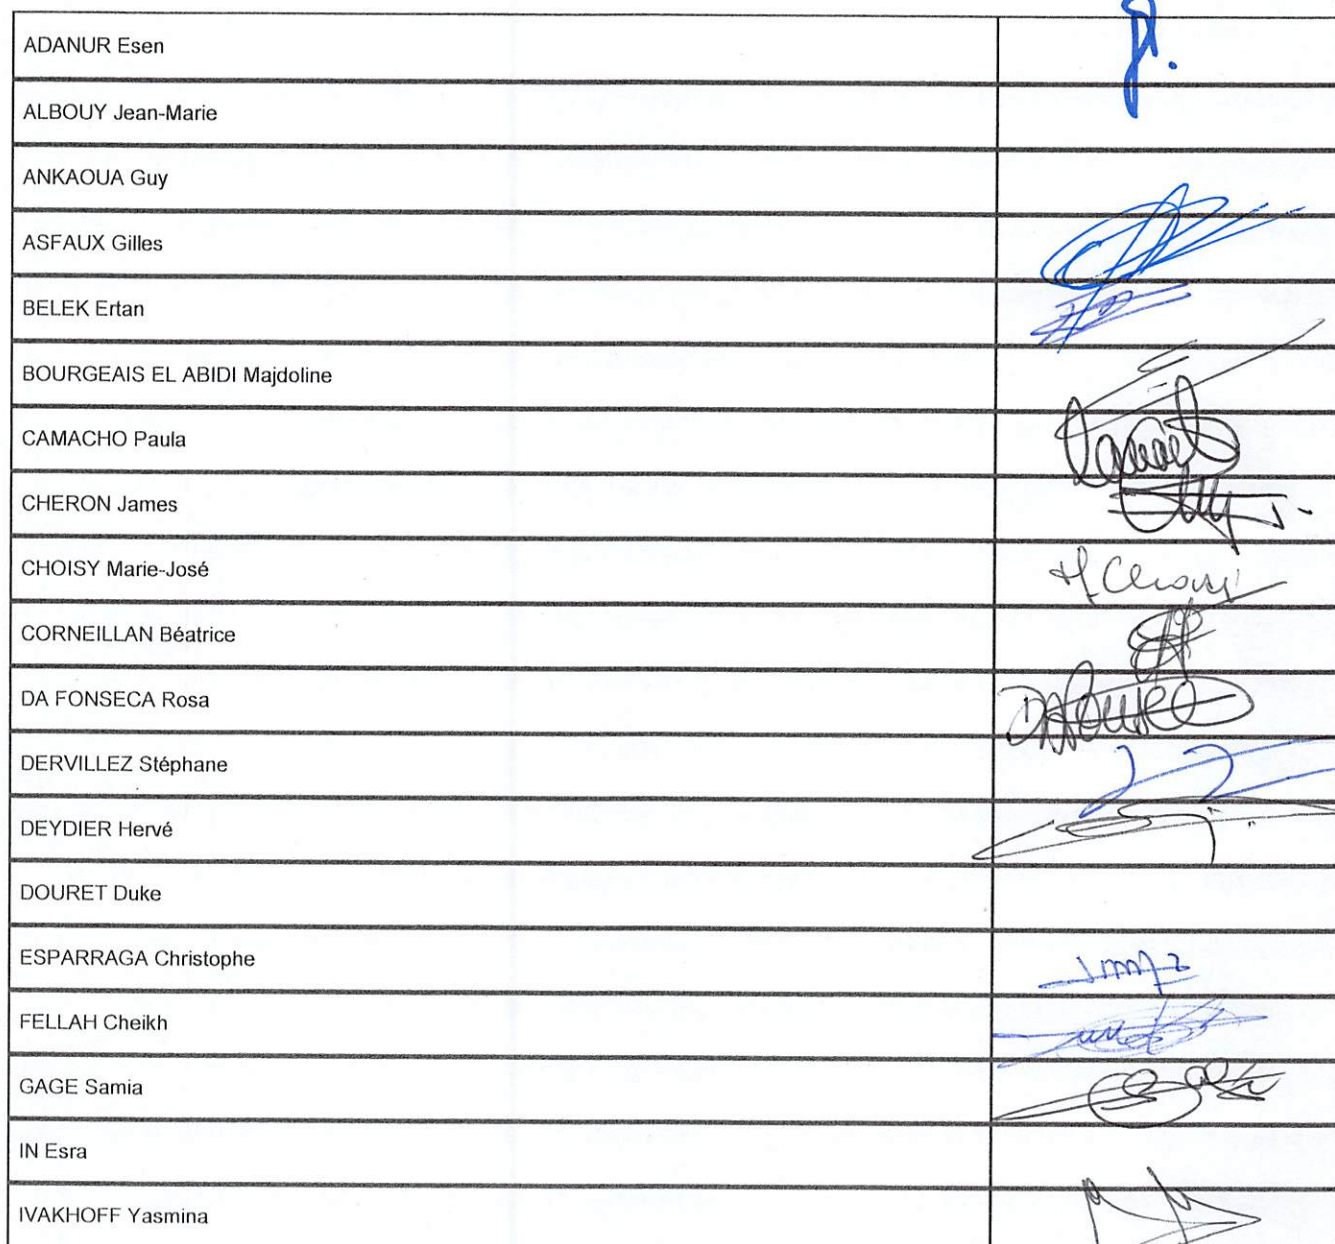 ADANUR Esen
ALBOUY Jean-Marie
ANKAOUA Guy
ASFAUX Gilles
BELEK Ertan
BOURGEAIS EL ABIDI Majdoline
CAMACHO Paula
CHERON James
CHOISY Marie-José
CORNEILLAN Béatrice
DA FONSECA Rosa
DERVILLEZ Stéphane
DEYDIER Hervé
DOURET Duke
ESPARRAGA Christophe
FELLAH Cheikh
GAGE Samia
IN Esra
IVAKHOFF Yasmina